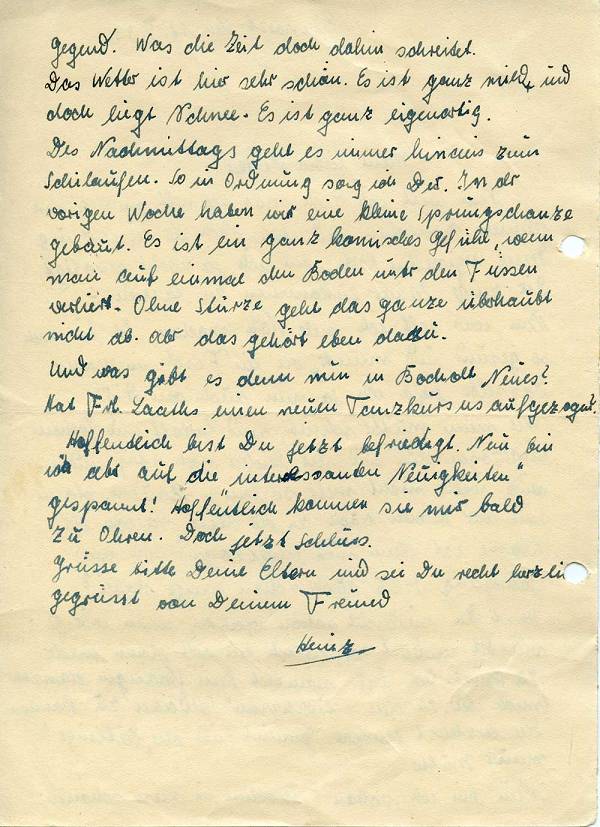 gegend. Was die Zeit doch dahin schreitet.
Das Wetter ist hier sehr schön. Es ist ganz mild und
doch liegt Schnee. Es ist ganz eigenartig.
Des Nachmittags geht es immer hinaus zum
Schilaufen. So in Ordnung sag ich Dir. In der
vorigen Woche haben wir eine kleine Sprungschanze
gebaut. Es ist ein ganz komisches Gefühl, wenn
man auf einmal den Boden unter den Füssen
verliert. Ohne Stürze geht das ganze überhaubt
nicht ab. aber das gehört eben dazu.
Und was gibt es denn nun in Bocholt Neues?
Hat Frl. Laaths einen neuen Tanzkursus aufgezogen?
Hoffendlich bist Du jetzt befriedigt. Nun bin
ich aber auf die interessanden „Neuigkeiten"
gespannt! Hoffentlich kommen sie mir bald
zu Ohren. Doch jetzt Schluss.
Grüsse bitte Deine Eltern und sei Du recht herzli
gegrüsst von Deinem Freund
Heinz